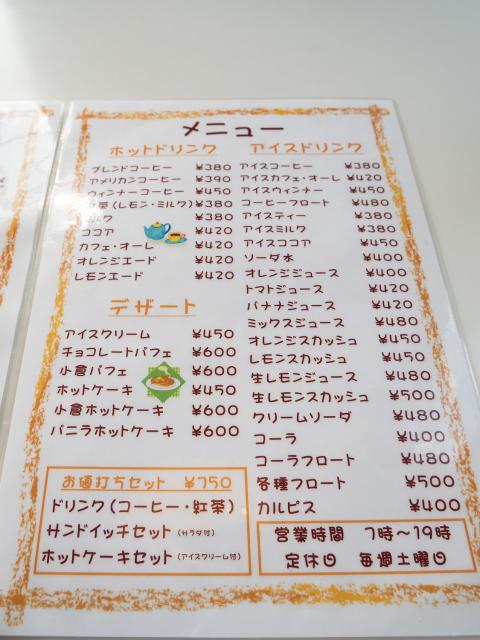 メニュー
ホットドリンク
ブレンドコーヒー ¥380
アメリカンコーヒー ¥390
ウィンナーコーヒー ¥450
(レモン・ミルク) ¥380
¥380
ココア ¥420
カフェ・オーレ ¥420
オレンジエード ¥420
レモンエード ¥420
デザート
アイスクリーム ¥450
チョコレートパフェ ¥600
小倉パフェ ¥600
ホットケーキ ¥450
小倉ホットケーキ ¥600
バニラホットケーキ ¥600
お値打ちセット ¥750
ドリンク(コーヒー・紅茶)
サンドイッチセット(サラダ付)
ホットケーキセット(アイスクリーム付)
アイスドリンク
アイスコーヒー ¥380
アイスカフェ・オーレ ¥420
アイスウィンナー ¥450
コーヒーフロート ¥480
アイスティー ¥380
アイスミルク ¥380
アイスココア ¥450
ソーダ水 ¥400
オレンジジュース ¥400
トマトジュース ¥420
バナナジュース ¥420
ミックスジュース ¥480
オレンジスカッシュ ¥450
レモンスカッシュ ¥450
生レモンジュース ¥480
生レモンスカッシュ ¥500
クリームソーダ ¥480
コーラ ¥400
コーラフロート ¥480
各種フロート ¥500
カルピス ¥400
営業時間 7時~19時
定休日 毎週土曜日